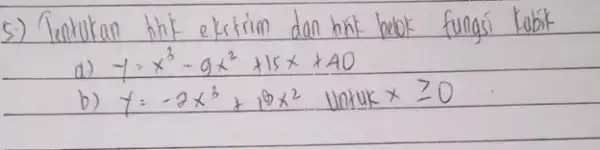 5.) Tentukan ttk ekstrim dan ttk belok fungsi kubik
a) y = x³ - 9x² + 15x + 40
b) y = -2x³ + 18x² untuk x ≥ 0